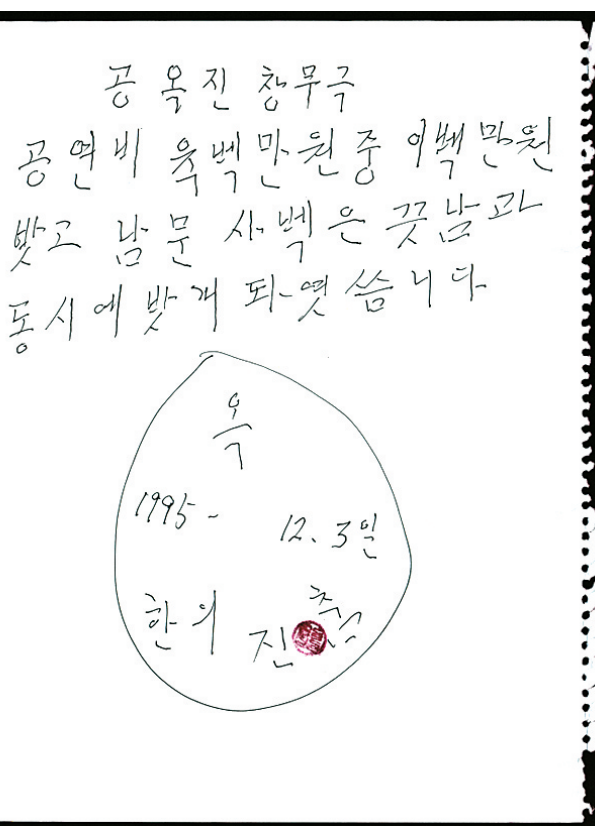 공 옥 진 창무극
공 연 비 육 벡 만 원 중 이벡 만 원
밧고 남문 사벡은 끗남과
동시에 밧게 돠엿씀니다
옥
1995- 12. 3일
한의
진
춤